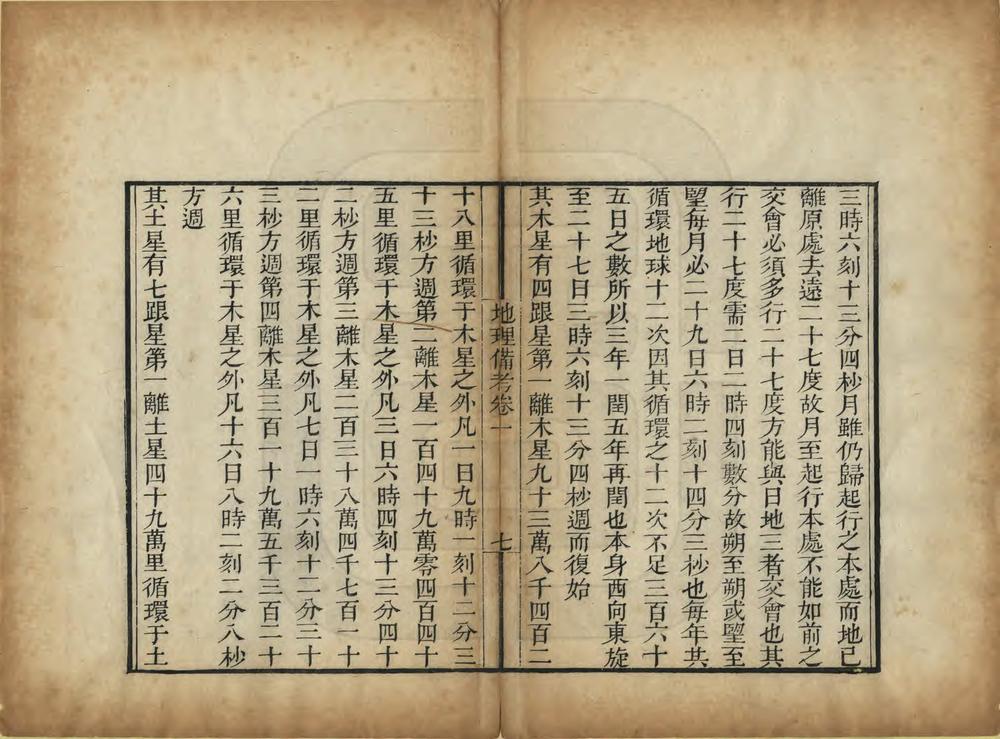 三時六刻十三分四秒月雖仍歸起行之本處而地已
離原處去遠二十七度故月至起行本處不能如前之
交會必須多行二十七度方能與日地三者交會也其
行二十七度需二日二時四刻數分故朔至朔或朢至
朢每月必二十九日六時二刻十四分三秒也每年其
循環地球十二次因其循環之十二次不足三百六十
五日之數所以三年一閏五年再閏也本身西向東旋
至二十七日三時六刻十三分四秒週而復始
其木星有四跟星第一離木星九十三萬八千四百二
地理備考卷一
七
十八里循環于木星之外凡一日九時一刻十二分三
十三秒方週第二離木星一百四十九萬零四百四十
五里循環于木星之外凡三日六時四刻十三分四十
二秒方週第三離木星二百三十八萬四千七百一十
二里循環于木星之外凡七日一時六刻十二分三十
三秒方週第四離木星三百一十九萬五千三百二十
六里循環于木星之外凡十六日八時二刻二分八秒
方週
其土星有七跟星第一離土星四十九萬里循環于土